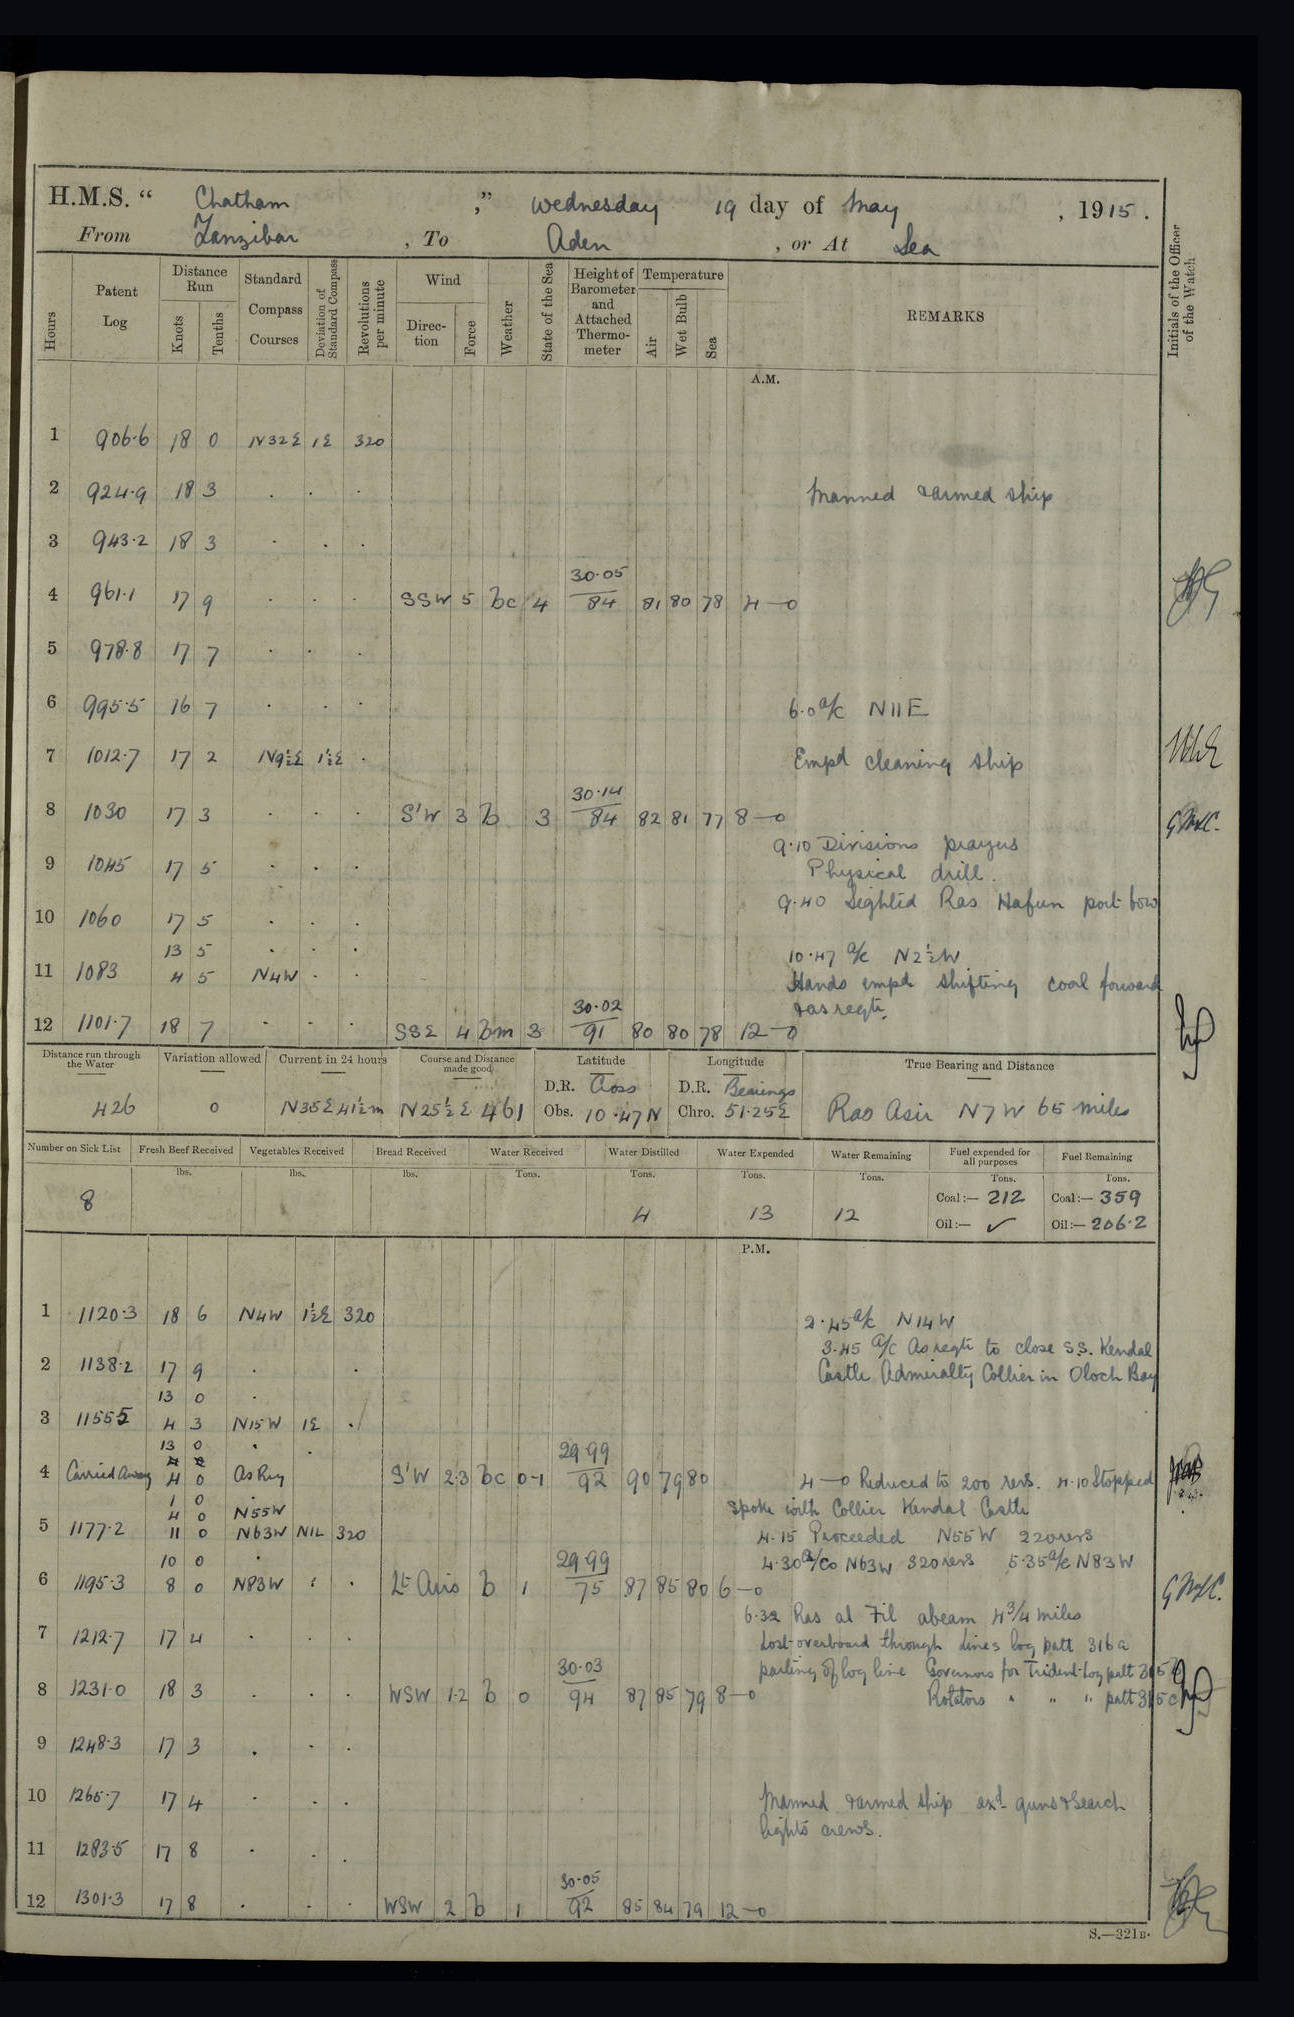 H.M.S. “ Chatham ,” Wednesday 19 day of May , 1915 .
From Zanzibar , To Aden , or At Sea
Hours Patent Log Distance Run Knots Tenths Standard Compass Courses Deviation of Standard Compass Revolutions per minute Wind Direc- tion Force Weather State of the Sea Height of Barometer and Attached Thermo- meter Temperature Air Wet Bulb Sea REMARKS Initials of the Officer of the Watch
A.M.
1 906.6 18 0 N32E 1E 320
2 924.9 18 3 . . . Manned & armed ship
3 943.2 18 3 . . .
4 961.1 17 9 . . . SSW 5 bc 4 30.05 84 81 80 78 4—0
5 978.8 17 7 . . .
6 995.5 16 7 . . . 6.0 a/c N11E
7 1012.7 17 2 N9½E 1½E . Empd cleaning ship
8 1030 17 3 . . . S'W 3 b 3 30.14 84 82 81 77 8—0
9.10 Divisions prayers
9 1045 17 5 . . . Physical drill.
9.40 Sighted Ras Hafun port bow
10 1060 17 5 . . .
13 5 . . . 10.47 a/c N2½W
11 1083 4 5 N4W . . Hands empd shifting coal forward
& as reqte.
12 1101.7 18 7 . . . SSE 4 bm 3 30.02 91 80 80 78 12—0
Distance run through the Water Variation allowed Current in 24 hours Course and Distance made good Latitude Longitude True Bearing and Distance
D.R. Cross D.R. Bearings
426 0 N35E 41½m N25½E 461 Obs. 10.47N Chro. 51.25E Ras Asir N7W 65 miles
Number on Sick List Fresh Beef Received Vegetables Received Bread Received Water Received Water Distilled Water Expended Water Remaining Fuel expended for all purposes Fuel Remaining
lbs. lbs. lbs. Tons. Tons. Tons. Tons. Tons. Tons.
8 4 13 12 Coal:— 212 Coal:— 359
Oil:— ✓ Oil:— 206.2
P.M.
1 1120.3 18 6 N4W 1½E 320 2.45 a/c N14W
3.45 a/c As reqte to close S.S. Kendal
2 1138.2 17 9 . . Castle Admiralty Collier in Oloch Bay
13 0 .
3 1155.5 4 3 N15W 1E .
13 0 . .
4 Carried Away 4 0 As Req S'W 2.3 bc 0-1 29.99 92 90 79 80 4—0 Reduced to 200 revs. 4.10 Stopped
1 0 . spoke with Collier Kendal Castle
4 0 N55W
5 1177.2 11 0 N63W NIL 320 4.15 Proceeded N55W 220 revs
10 0 . 4.30 a/co N63W 320 revs 5.35 a/c N83W
6 1195.3 8 0 N83W . . Lt Airs b 1 29.99 75 87 85 80 6—0
6.32 Ras al Fil abeam 4 3/4 miles
7 1212.7 17 4 . . . Lost overboard through Lines log patt 316a
parting of log line Governors for Trident Log patt 315
8 1231.0 18 3 . . . WSW 1.2 b 0 30.03 94 87 85 79 8—0 Rotators " " " patt 315c
9 1248.3 17 3 . . .
10 1265.7 17 4 . . . Manned & armed ship exd guns & Search
lights crews.
11 1283.5 17 8 . . .
12 1301.3 17 8 . . . WSW 2 b 1 30.05 92 85 84 79 12—0
S.—321B.